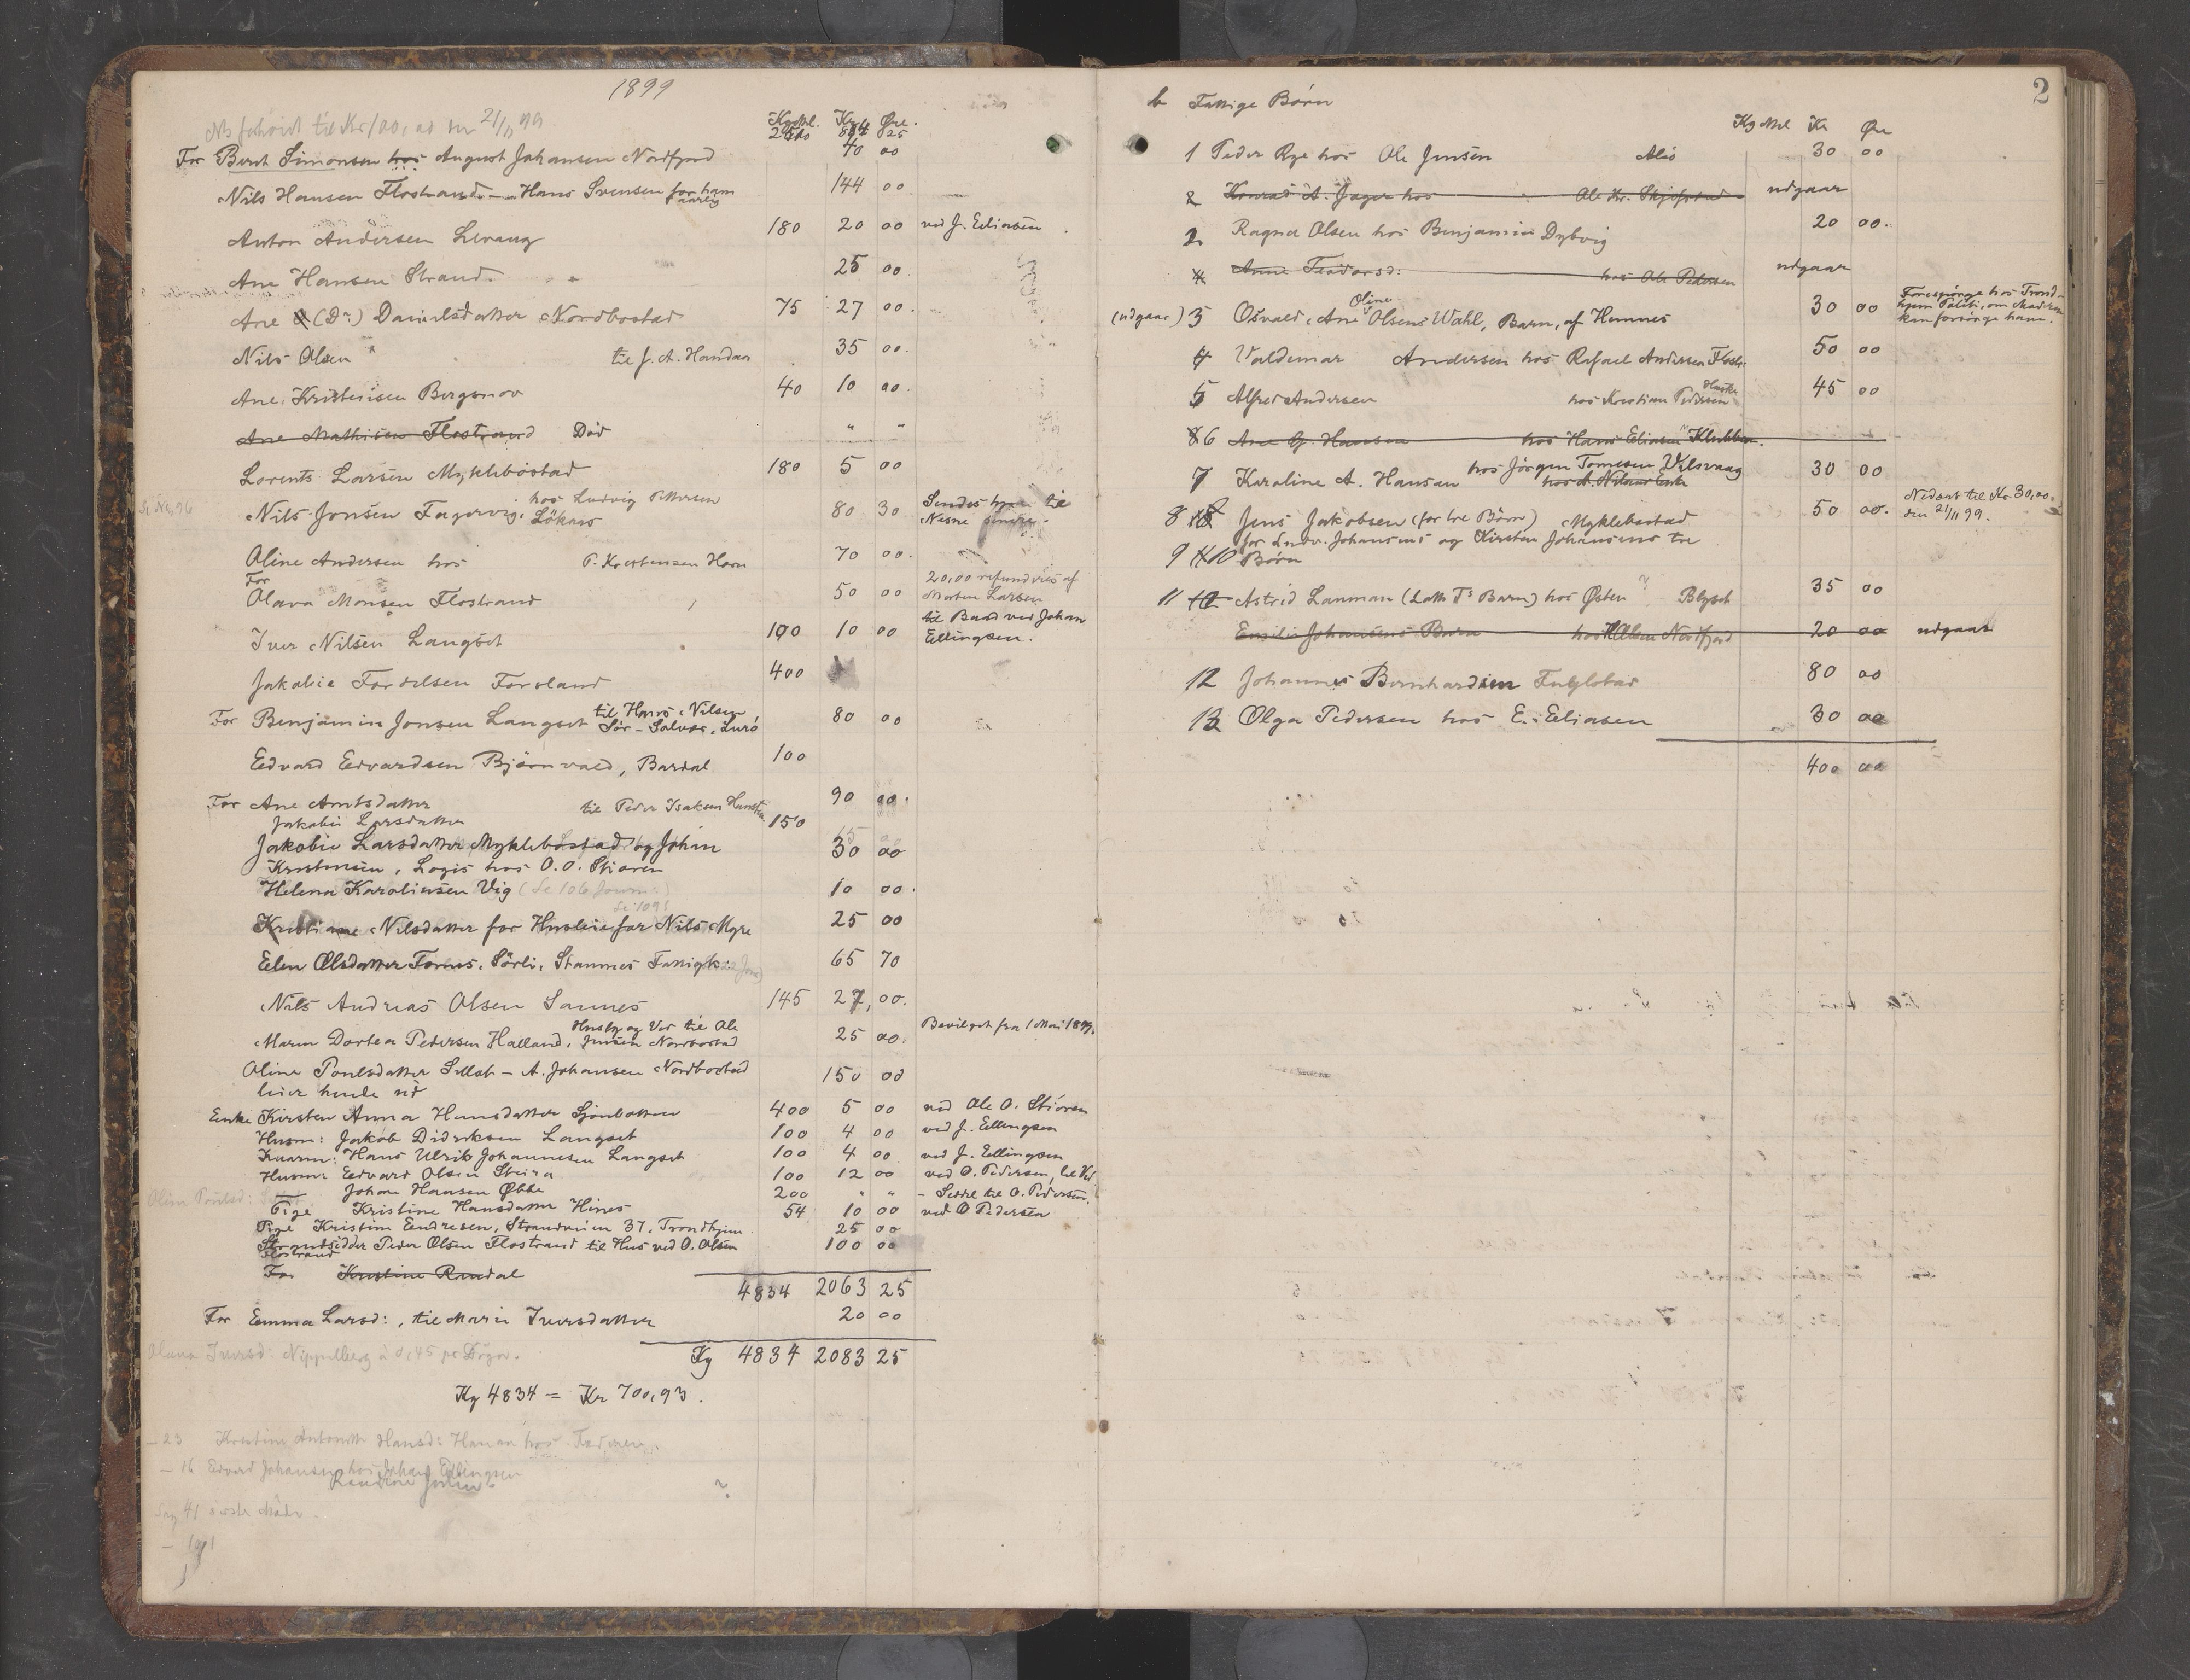 1899
til Kr 100, 21/11 99
Kg Mel. Kr Øre.
2510 894 25
For Bernt Simonsen hos August Johansen Nordfjord 70 00
Nils Hansen Flostrand - Hans Svensen for ham aarlig 144 00
Anton Andersen Levang 180 20 00 ved J. Eliasen
Ane Hansen Strand 25 00
Ane (Dr:) Danielsdatter Nordbostad 75 27 00
Nils Olsen " til J. A. Handan 35 00
Ane Kristensen Bergsnov 40 10 00
Ane Mathisen Flostrand Død " "
Lorents Larsen Myklebostad 180 5 00
Nils Jonsen Fagervig, hos Ludvig Pettersen Lökaas 80 30 Sendes til Nesne
Oline Andersen hos P. Kristensen Havn 70 00
For
Olava Monsen Flostrand 50 00 20,00 refunderes af Morten Larsen
Iver Nilsen Langset 100 10 00 til Baad ved Johan Ellingsen.
Jakobie Tordelsen Forsland 400
For Benjamin Jonsen Langset til Hans Nilsen, Sør-Solvær, Lurö 80 00
Edvard Edvardsen Björnvald, Bardal 100
For Ane Arntsdatter til Peder Isaksen 90 00
Jakobie Larsdatter 150
Jakobie Larsdatter Myklebostad og Johan 30 00
Kristensen, Logis hos O. O. Stioren
Helena Karolinsen Vig (Se 106 Journ.) 10 00
Kristiane Nilsdatter for Husleie for Nils Myre 25 00
Elen Olsdatter Fornes, Sörli, Stamnes Fattigk. 65 70
Nils Andreas Olsen Sannes 145 27,00.
Maren Dortea Pedersen Halland, Husly og Ved til Ole Jensen Nordbostad 25 00 Bevilget fra 1 Mai 1899.
Oline Poulsdatter Sellæt - A. Johansen Nordbostad 150 00
leier hende ud
Enke Kirsten Anna Hansdatter Sjonbotten 400 5 00 ved Ole O. Stioren
Husm: Jakob Didriksen Langset 100 4 00 ved J. Ellingsen
Kaarm: Hans Ulrik Johannesen Langset 100 4 00 ved J. Ellingsen
Husm: Edvard Olsen Steira 100 12 00 ved O. Pedersen, til Ved.
Johan Hansen Øbbe 200 " " - Seddel til O. Pedersen.
Pige Kristine Hansdatter Hines 54 10 00 ved O Pedersen
Pige Kristine Endresen, Strandveien 37, Trondhjem 25 00
Strandsidder Peder Olsen Flostrand til Hus ved O. Olsen 100 00
Flostrand
For Kristine Randal
4834 2063 25
For Emma Larsd:, til Marie Iversdatter 20 00
Olava Iversd: Nippelberg à 0,45 pr Dögn.
Kg 4834 2083 25
Kg 4834 = Kr 700,93.
- 23 Kristine Antonette Hansd: hos Faderen.
- 16 Edvard Johansen hos Johan Ellingsen
?
- 191
2
b Fattige Børn
Kg Mel Kr Øre
1 Peder Rye hos Ole Jensen Alsö 30 00
2 Konrad A. Jager hos Ole Kr. udgaar
2 Ragna Olsen hos Benjamin Dybvig 20 00.
4 Anne Teodorsd: hos Ole Pedersen udgaar
(udgaar) 3 Osvald, Ane Oline Olsens Wahl, Barn, af Hemnes 30 00 Forespörge hos Trondhjem Politi, om Moderen kan forsörge ham.
4 Valdemar Andersen hos Rafael Andersen Flostr. 50 00
5 Alfred Andersen hos Kristian Pedersen 45 00
6 Ane G. Hansen hos Hans Eliasen Klubben.
7 Karoline A. Hansen hos Jörgen Tomesen Vilsvaag 30 00
8 Jens Jakobsen (for tre Börn) Myklebostad 50 00. Nedsat til Kr. 30,00. den 21/11 99.
for Ludv. Johansens og Kirsten Johansens tre
9 10 Börn
11 Astrid Lanman (Loth Ts Barn) hos Østen Blyset 35 00
Emilie Johansens Barn hos Nordfjord 20 00 udgaar
12 Johannes Bernhardsen 80 00
13 Olga Pedersen hos E. Eliasen 30 00
400 00